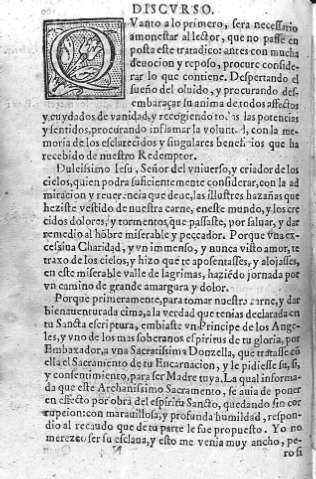 DISCVRSO.
QVanto a lo primero, sera necessario
amonestar al lector, que no passe en
posta este tratadico: antes con mucha
deuocion y reposo, procure conside-
rar lo que contiene. Despertando el
sueño del oluido, y procurando des-
embaraçar su anima de todos affectos
y cuydados de vanidad, y recogiendo todas las potencias
y sentidos, procurando inflamar la voluntad, con la me-
moria de los esclarecidos y singulares beneficios que ha
recebido de nuestro Redemptor.
Dulcissimo Iesu, Señor del vniuerso, y criador de los
cielos, quien podra suficientemente considerar, con la ad
miracion y reuerencia que deue, las illustres hazañas que
heziste vestido de nuestra carne, en este mundo, y los cre
cidos dolores, y tormentos que passaste, por saluar, y dar
remedio al hõbre miserable y peccador. Porque vna ex-
cessiua Charidad, y vn immenso, y nunca visto amor, te
traxo de los cielos, y hizo que te aposentasses, y alojasses,
en este miserable valle de lagrimas, haziẽdo jornada por
vn camino de grande amargura y dolor.
Porque primeramente, para tomar nuestra carne, y dar
bienauenturada cima, a la verdad que tenias declarada en
tu Sancta escriptura, embiaste vn Principe de los Ange-
les, y vno de los mas soberanos espiritus de tu gloria, por
Embaxador, a vna Sacratissima Donzella, que tratasse cõ
ella el Sacramento de tu Encarnacion, y le pidiesse su, si,
y consentimiento, para ser Madre tuya. La qual informa-
da que este Archanissimo Sacramento, se auia de poner
en effecto por obra del espiritu Sancto, quedando sin cor
rupcion: con marauillosa, y profunda humildad, respon-
dio al recaudo que de tu parte le fue propuesto. Yo no
merezco ser su esclaua, y esto me venia muy ancho, pe-
ro si